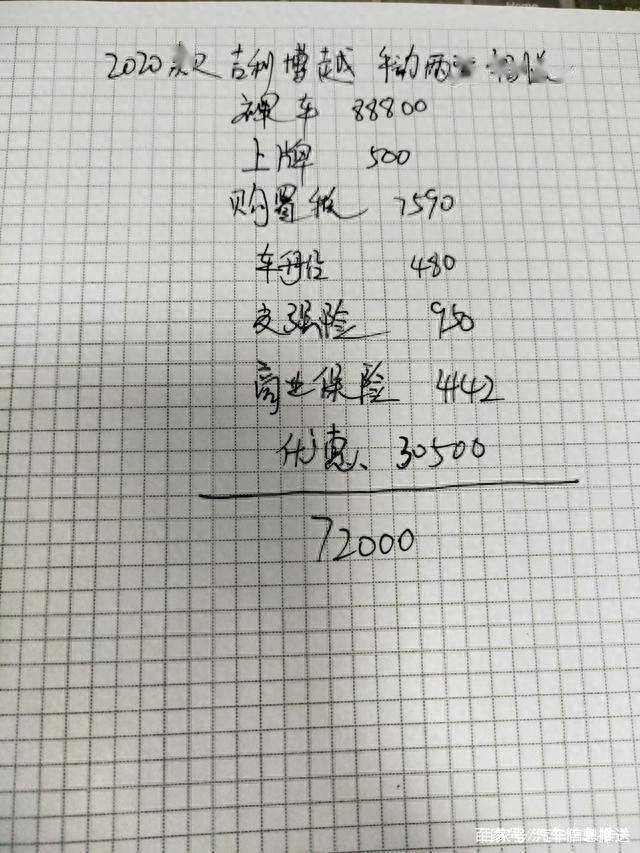 2020款 吉利博越 手动两
裸车 88800
上牌 500
购置税 7590
车船 480
交强险 950
商业保险 4142
优惠、30500
72000
百家号/汽车信息推送